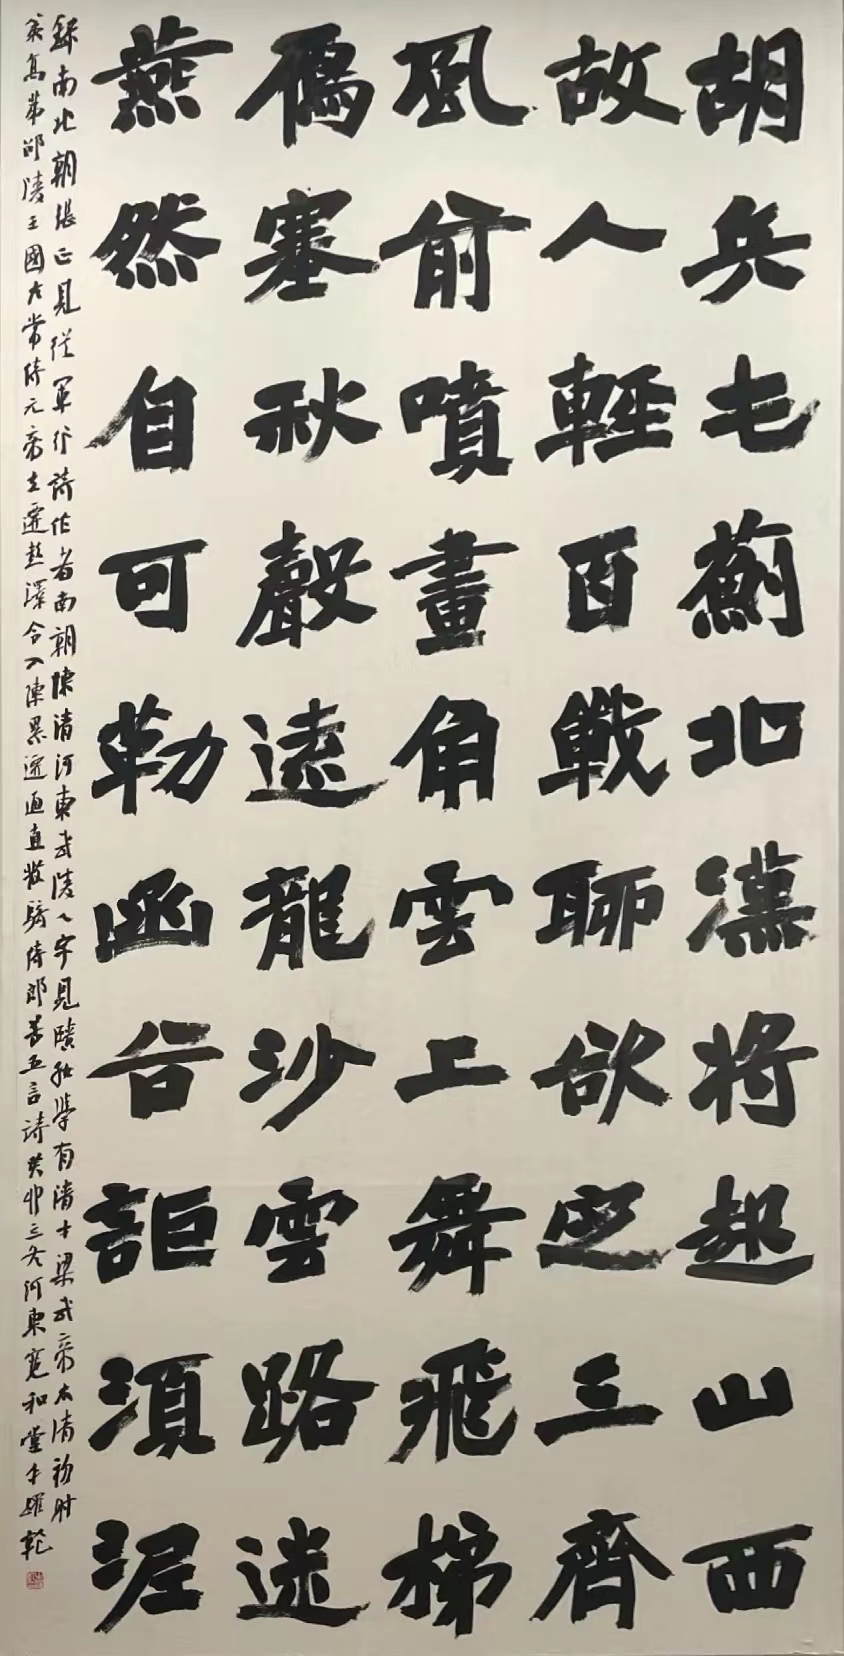 胡兵屯薊北漢將起山西
故人輕百戰聊欲定三齊
風前噴畫角雲上舞飛梯
雁塞秋聲遠龍沙雲路迷
燕然自可勒函谷詎須泥
錄南北朝張正見從軍行詩作者南朝陳清河東武陵人字見賾好學有清才梁武帝太清初射
策高第邵陵王國左常侍元帝立遷彭澤令入陳累遷通直散騎侍郎善五言詩癸卯三冬河東寬和堂